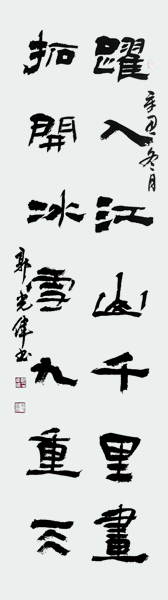 躍入江山千里畫
拓開冰雪九重天
辛丑冬月
郭光偉書